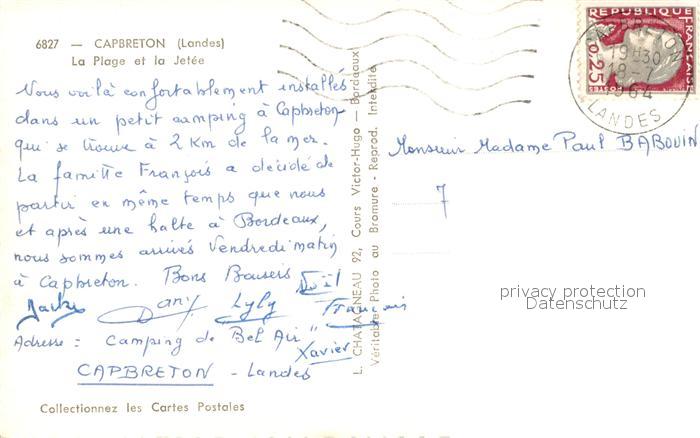 6827 — CAPBRETON (Landes)
La Plage et la Jetée
Nous voilà confortablement installés
dans un petit camping à Capbreton
qui se trouve à 2 Km de la mer.
La famille François a décidé de
partir en même temps que nous
et après une halte à Bordeaux,
nous sommes arrivés Vendredi matin
à Capbreton. Bons Baisers Noël
Dany Lyly François
Adresse : Camping de Bel Air"
Xavier
CAPBRETON - Landes
Collectionnez les Cartes Postales
L. CHATAGNEAU 92, Cours Victor-Hugo — Bordeaux
Véritable Photo au Bromure - Reprod. Interdite
REPUBLIQUE FRANÇAISE
0,25
POSTES
CAPBRETON
19H30
1964
LANDES
Monsieur Madame Paul BABOUIN
7
privacy protection
Datenschutz